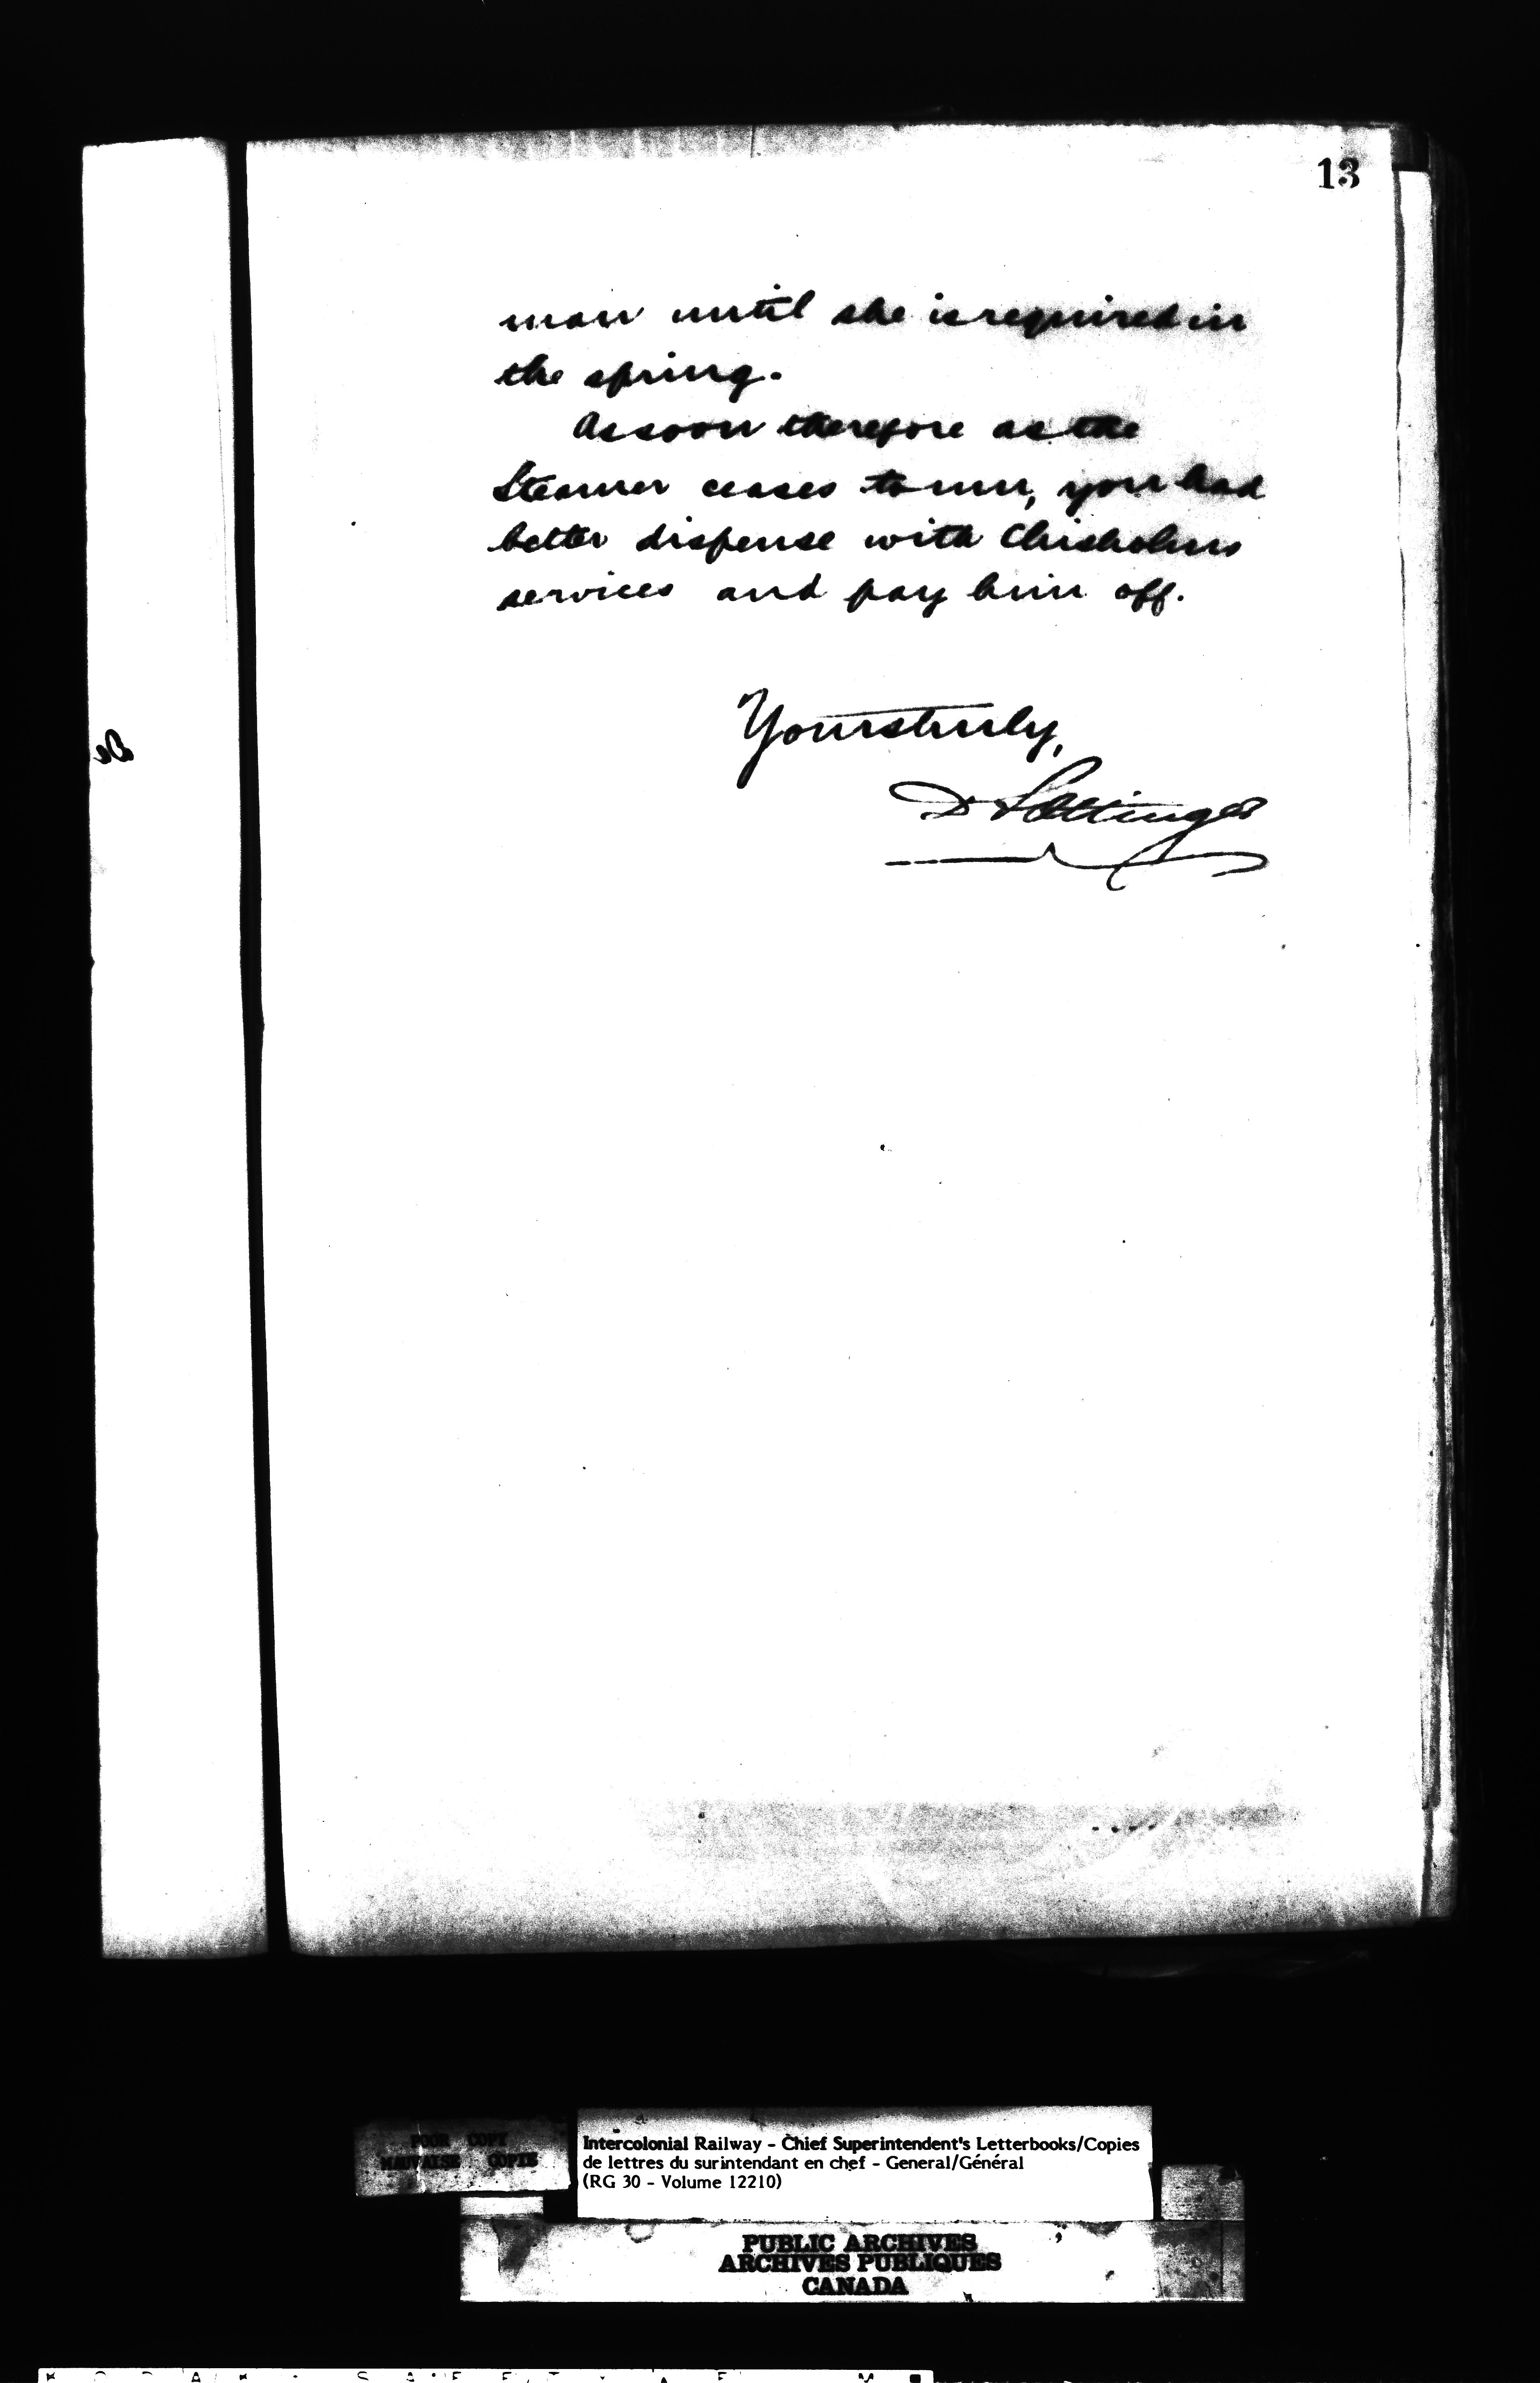 13
man until she is required in
the spring.
As soon therefore as the
Steamer ceases to run, you had
better dispense with Chisholms
services and pay him off.
Yours truly,
D Pottinger
POOR COPY
MAUVAISE COPIE
Intercolonial Railway - Chief Superintendent's Letterbooks/Copies
de lettres du surintendant en chef - General/Général
(RG 30 - Volume 12210)
PUBLIC ARCHIVES
ARCHIVES PUBLIQUES
CANADA